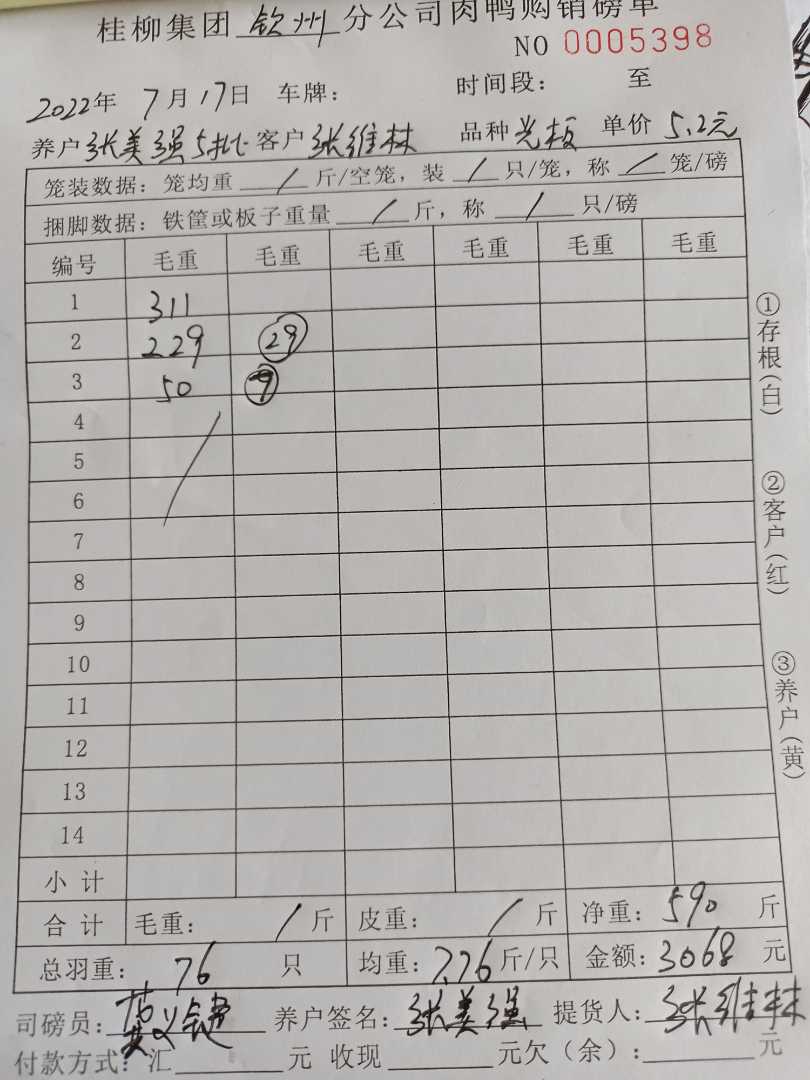 桂柳集团 钦州 分公司肉鸭购销磅单
NO 0005398
2022年 7月17日 车牌: 时间段: 至
养户 张美强5批 客户 张维林 品种 光板 单价 5.2元
笼装数据: 笼均重 / 斤/空笼, 装 / 只/笼, 称 / 笼/磅
捆脚数据: 铁筐或板子重量 / 斤, 称 / 只/磅
编号 毛重 毛重 毛重 毛重 毛重 毛重
1 311
2 229 29
3 50 9
4
5
6
7
8
9
10
11
12
13
14
小计
合计 毛重: / 斤 皮重: / 斤 净重: 590 斤
总羽重: 76 只 均重: 7.76 斤/只 金额: 3068 元
司磅员: 养户签名: 张美强 提货人: 张维林
付款方式: 汇 元 收现 元欠(余): 元
①存根(白)
②客户(红)
③养户(黄)